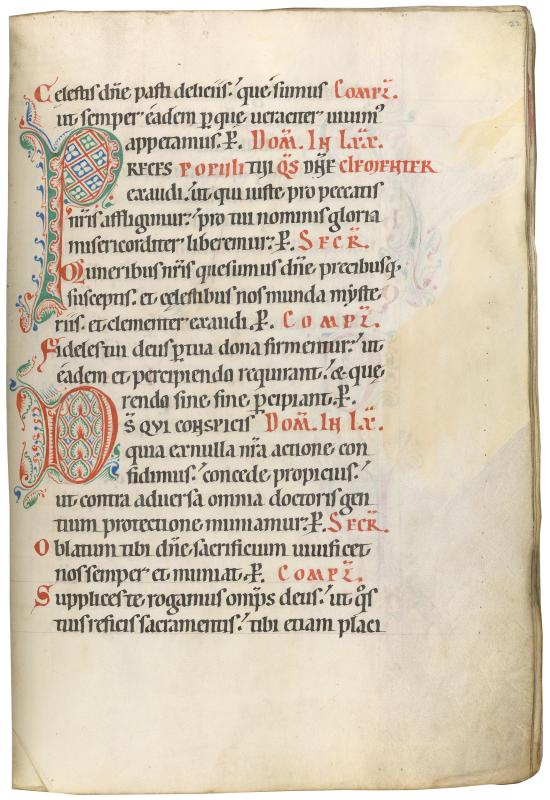 22
Celestis dn̄e pasti deliciis. quesumus Compl̄.
ut semper eadem ꝑ que ueraciter uiuim᷒
appetamus. P̱. Dom̄. In Lxx.
PRECES POPULI TUI Q̄S DN̄E CLEMENTER
exaudi. ut qui iuste pro peccatis
nr̄is affligimur. pro tui nominis gloria
misericorditer liberemur. P̱. Secr̄.
Muneribus nr̄is quesumus dn̄e precibusq;
susceptis. et cęlestibus nos munda myste
riis. et clementer exaudi. P̱. Compl̄.
Fideles tui deus ꝑ tua dona firmentur. ut
eadem et percipiendo requirant. & quę
rendo sine fine ꝑcipiant. P̱.
DS̄ QUI CONSPICIS Dom̄. In Lx̄.
quia ex nulla nr̄a actione con
fidimus. concede propicius.
ut contra aduersa omnia doctoris gen
tium protectione muniamur. P̱. Secr̄.
Oblatum tibi dn̄e sacrificium uiuificet
nos semper et muniat. P̱. Compl̄.
Supplices te rogamus omp̄s deus. ut q᷒s
tuis reficis sacramentis. tibi etiam placi